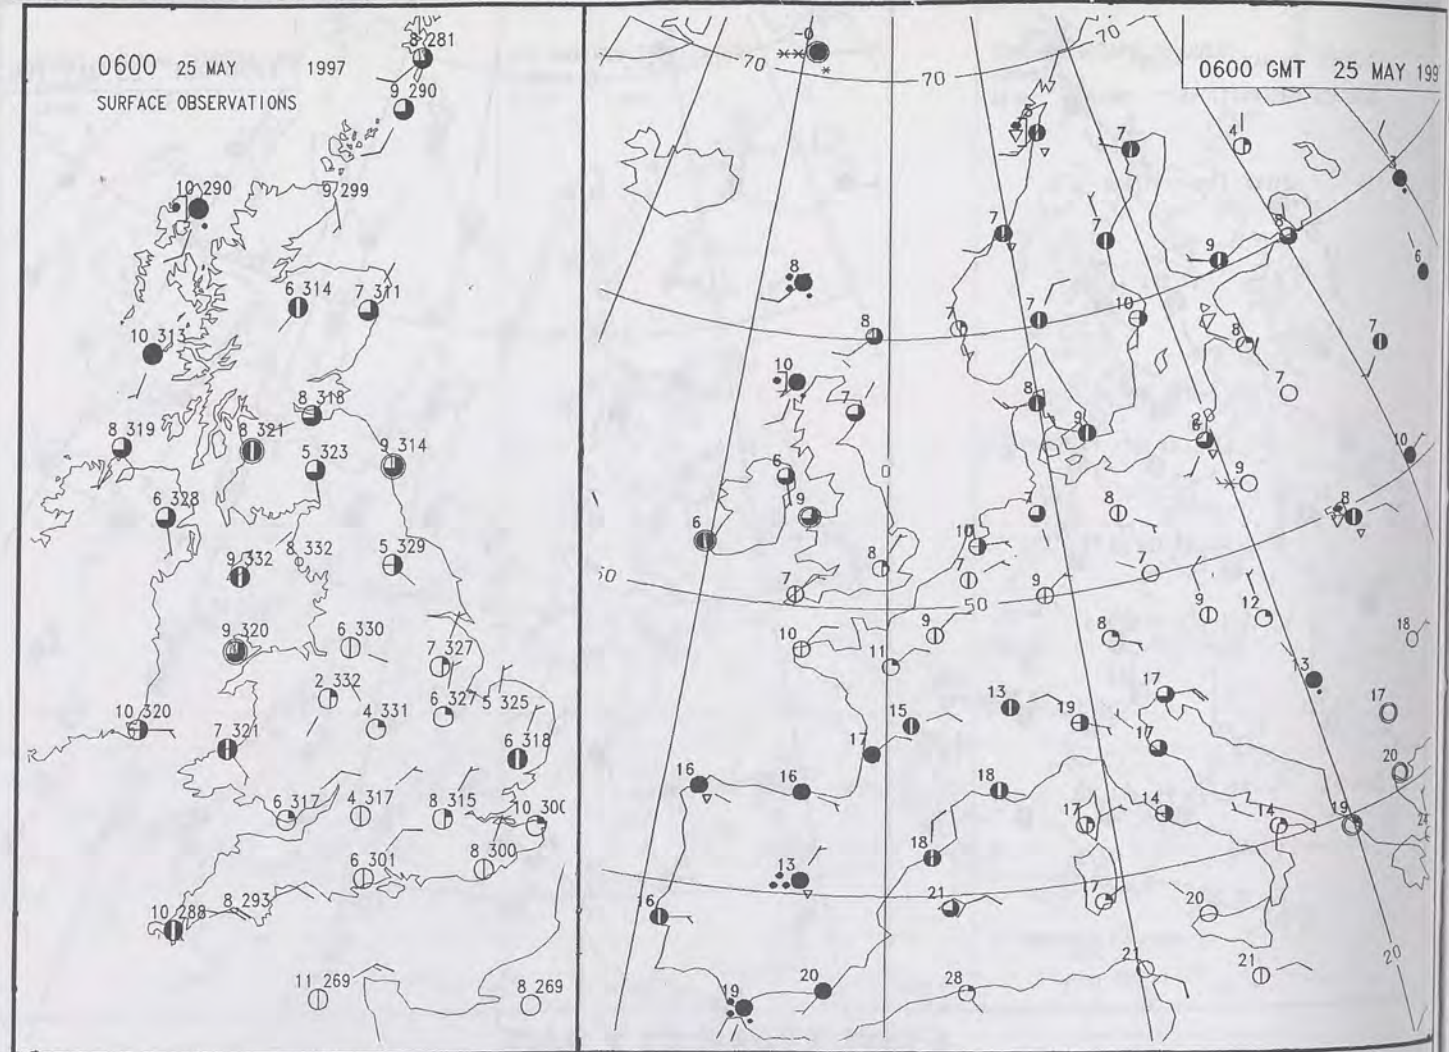 0600 25 MAY 1997
SURFACE OBSERVATIONS
8 281
9 290
10 290
9 299
6 314
7 311
10 313
8 318
8 319
8 321
9 314
5 323
6 328
9 332
8 332
5 329
9 320
6 330
7 327
2 332
6 327
5 325
10 320
4 331
7 321
6 318
6 317
4 317
8 315
10 300
6 301
8 300
8 293
10 288
11 269
8 269
0600 GMT 25 MAY 199
-0
70
70
70
7
4
3
7
7
8
9
6
8
7
7
10
8
8
7
10
7
7
8
9
6
10
6
0
9
9
7
8
8
6
10
8
7
7
9
50
50
9
12
18
10
9
11
8
13
17
13
17
15
19
17
17
20
16
16
18
17
14
14
19
24
18
13
21
17
20
16
21
21
20
28
20
19